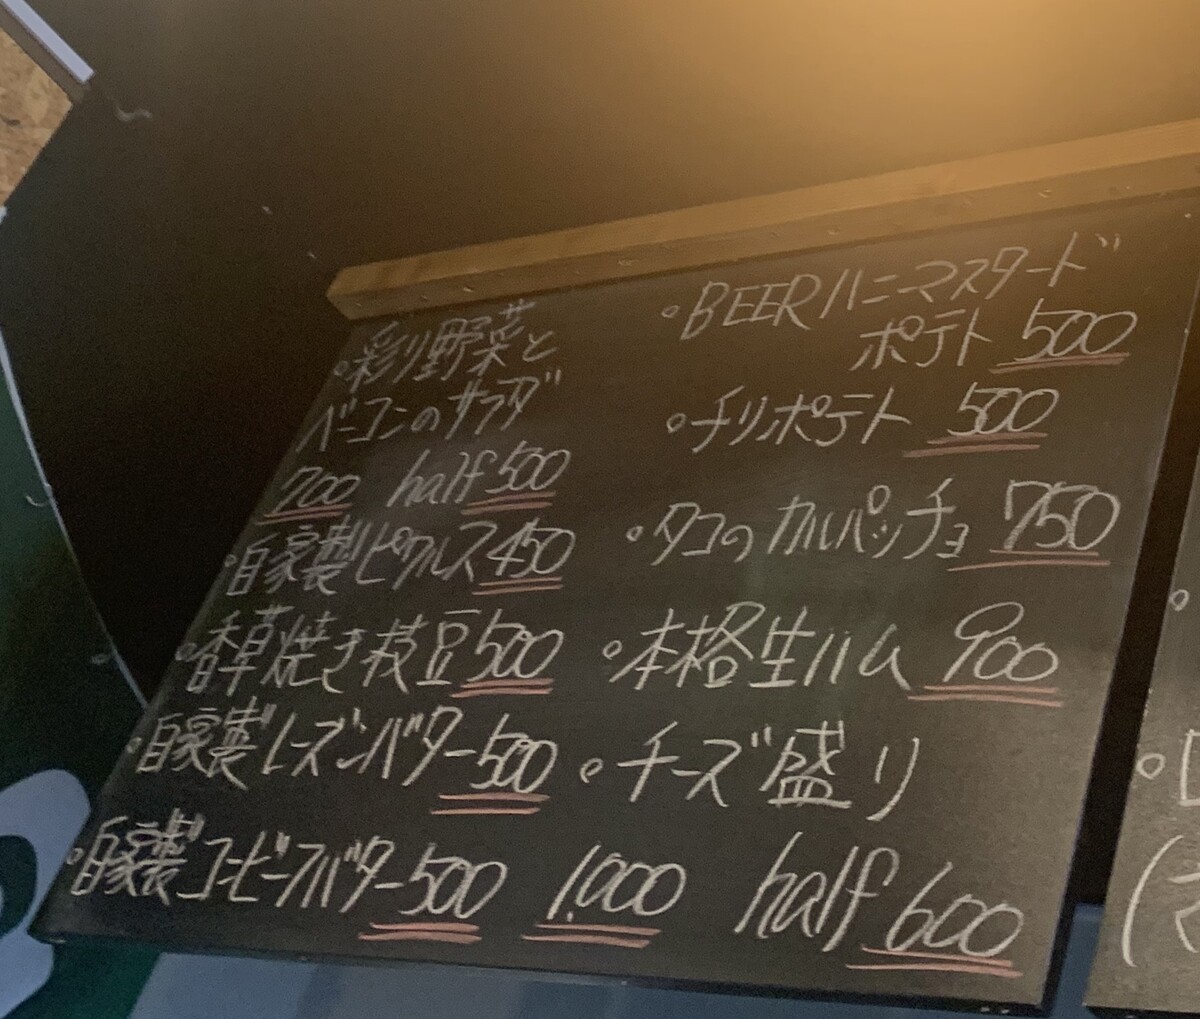 ・彩り野菜と
ベーコンのサラダ
700 half 500
・自家製ピクルス 450
・香草焼き枝豆 500
・自家製レーズンバター 500
・自家製コンビーフバター 500
・BEERハニーマスタード
ポテト 500
・チリポテト 500
・タコのカルパッチョ 750
・本格生ハム 900
・チーズ盛り
1,000 half 600